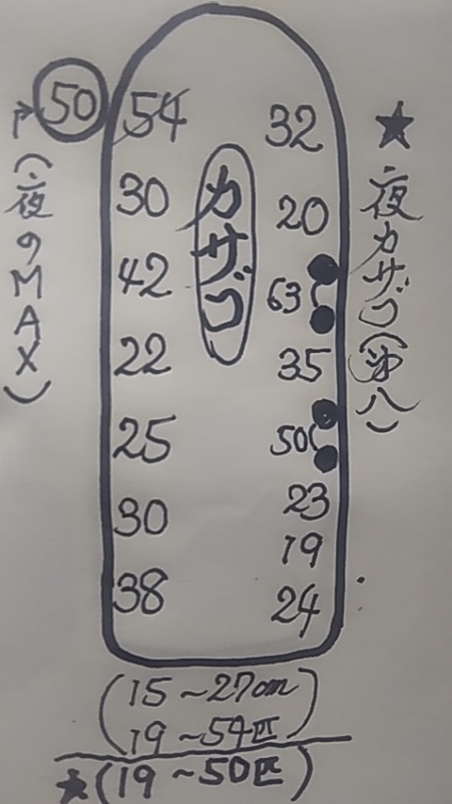 50
(夜のMAX)
54
30
42
22
25
30
38
カサゴ
32
20
63
35
50
23
19
24
★夜カサゴ(第八)
(15~27cm
19~54匹)
★(19~50匹)